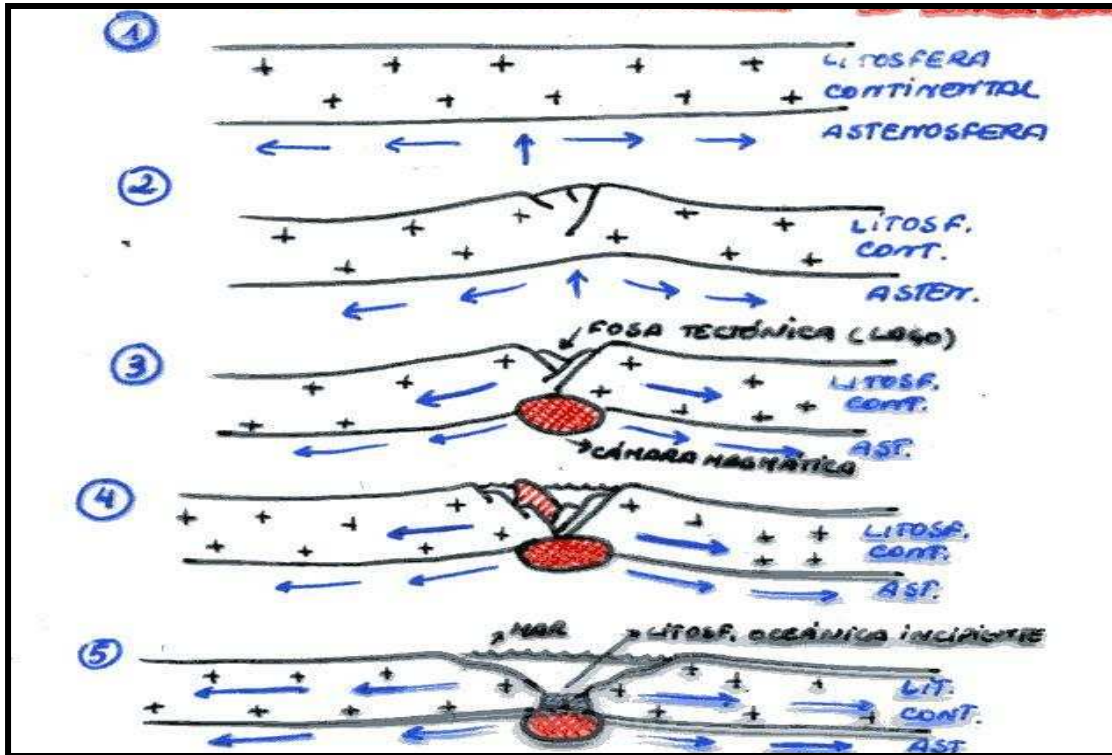 1
LITOSFERA
CONTINENTAL
ASTENOSFERA
2
LITOSF.
CONT.
ASTEN.
FOSA TECTÓNICA (LAGO)
3
LITOSF.
CONT.
AST.
CÁMARA MAGMÁTICA
4
LITOSF.
CONT.
AST.
MAR
LITOSF. OCEÁNICA INCIPIENTE
5
LIT.
CONT.
AST